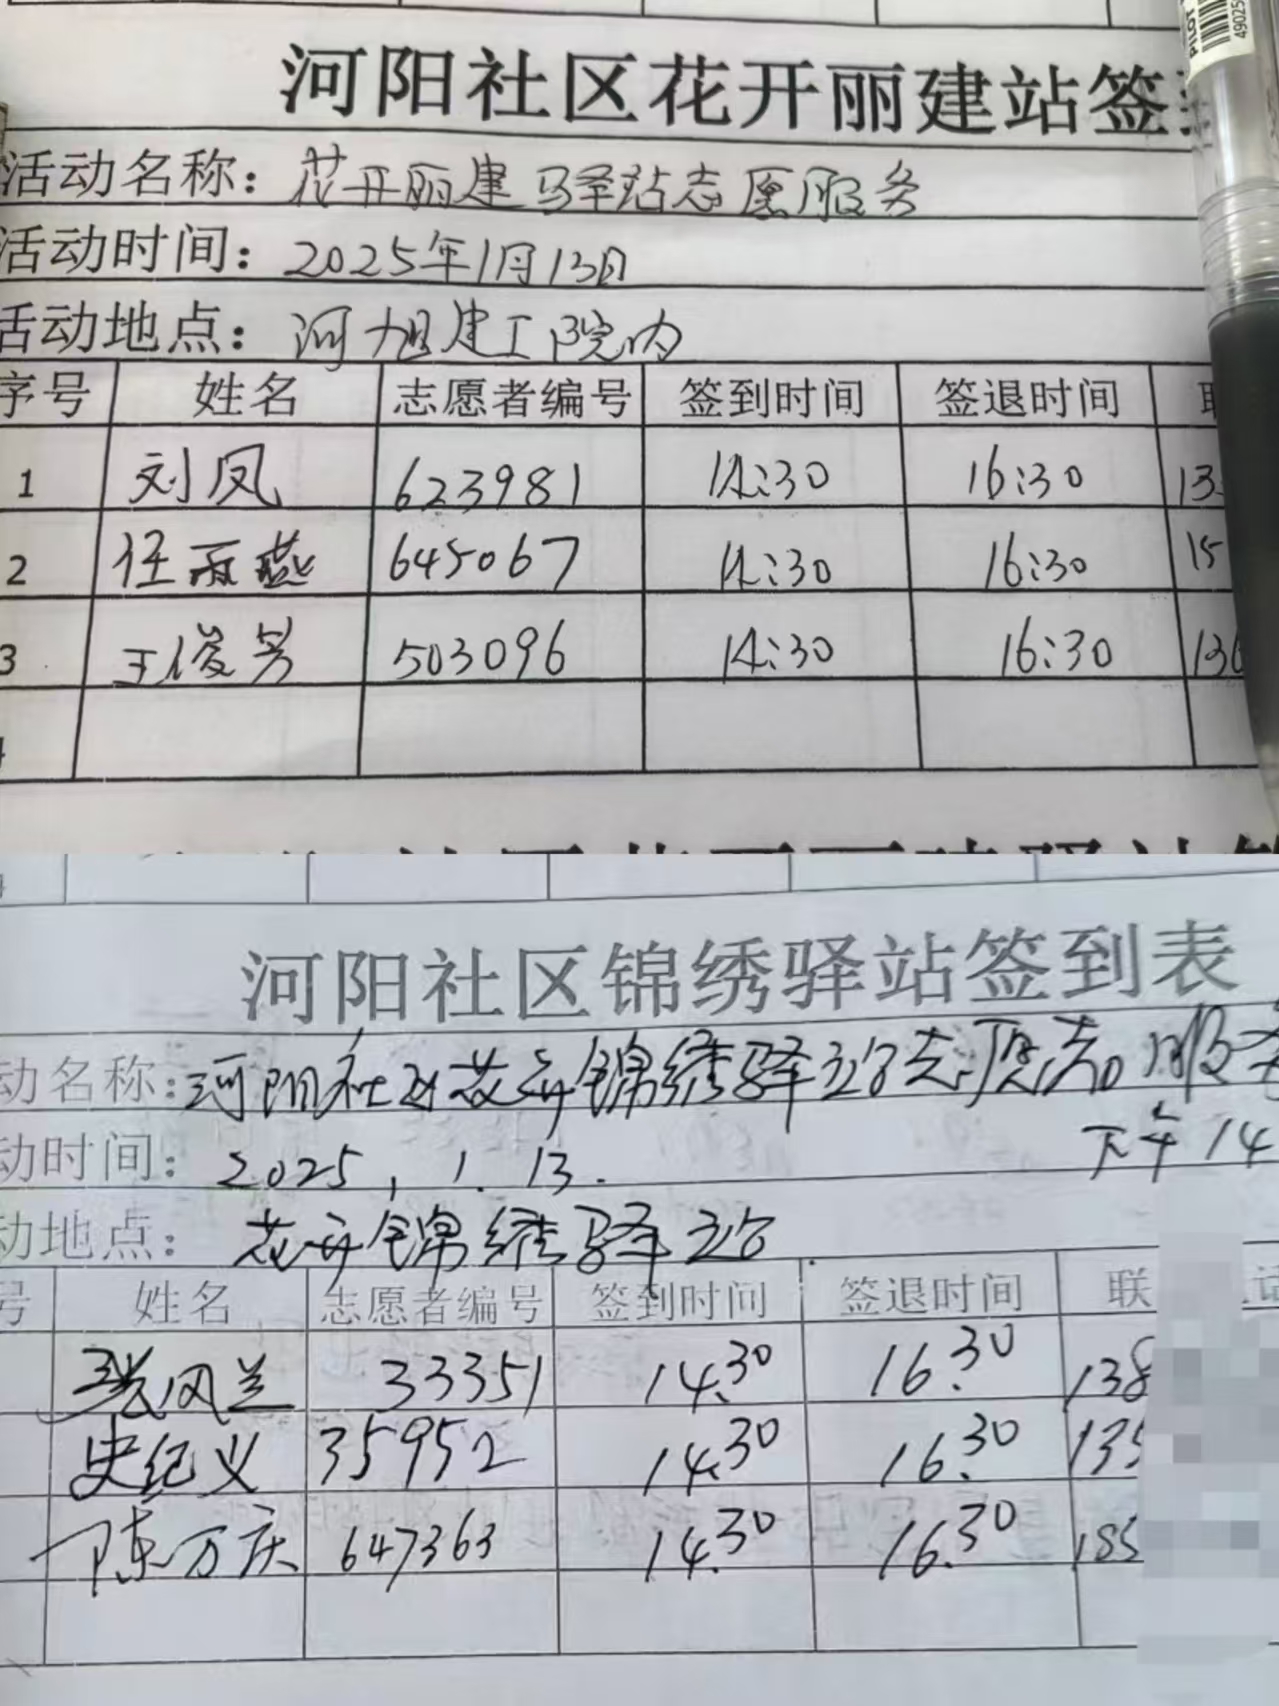 PILOT
49025
河阳社区花开丽建站签
活动名称：花开丽建驿站志愿服务
活动时间：2025年1月13日
活动地点：河旭建工院内
序号 姓名 志愿者编号 签到时间 签退时间
1 刘凤 623981 14:30 16:30 13
2 任丽燕 645067 14:30 16:30 15
3 王俊芳 503096 14:30 16:30 136
河阳社区锦绣驿站签到表
动名称：河阳社区花开锦绣驿站志愿者服务
动时间：2025，1.13. 下午14
动地点：花开锦绣驿站
号 姓名 志愿者编号 签到时间 签退时间 联
张凤兰 33351 14.30 16.30 138
史纪义 35952 14.30 16.30 135
陈万庆 647363 14.30 16.30 185